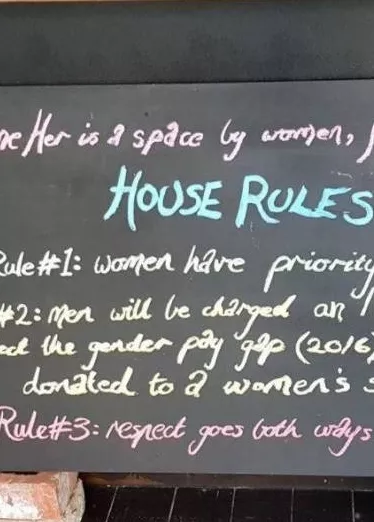 Her is a space by women,
HOUSE RULES
Rule #1: women have priority
#2: men will be charged an
the gender pay gap (2016)
donated to a women's
Rule #3: respect goes both ways